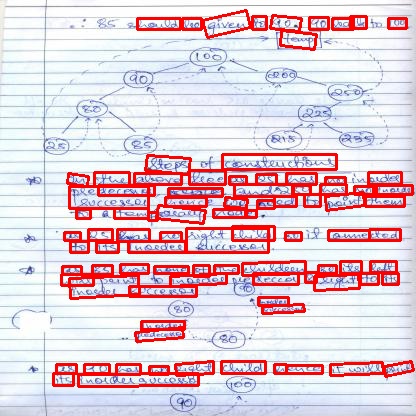 ∴ 85 should be given to 90. 90 to 100
temp
100
90 200
80 250
225
25 85 215 235
Steps of constructions
In the above tree as 25 has no inorder
predecessor and 250 has no inorder
successor hence we need to point them
to a temporary node.
as 25 has no right child so it connected
to its inorder successor
as 85 has none of the children so its left
will point to inorder predecessor & right to its
inorder successor
90
80 inorder successor
inorder predecessor 80
as 90 has no right child hence it will point
its inorder successor
100
90